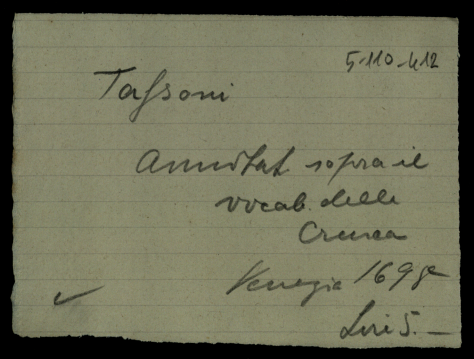 5-110-412
Tassoni
Annotat sopra il
vocab. della
Crusca
Venezia 1698
Lire 5.—